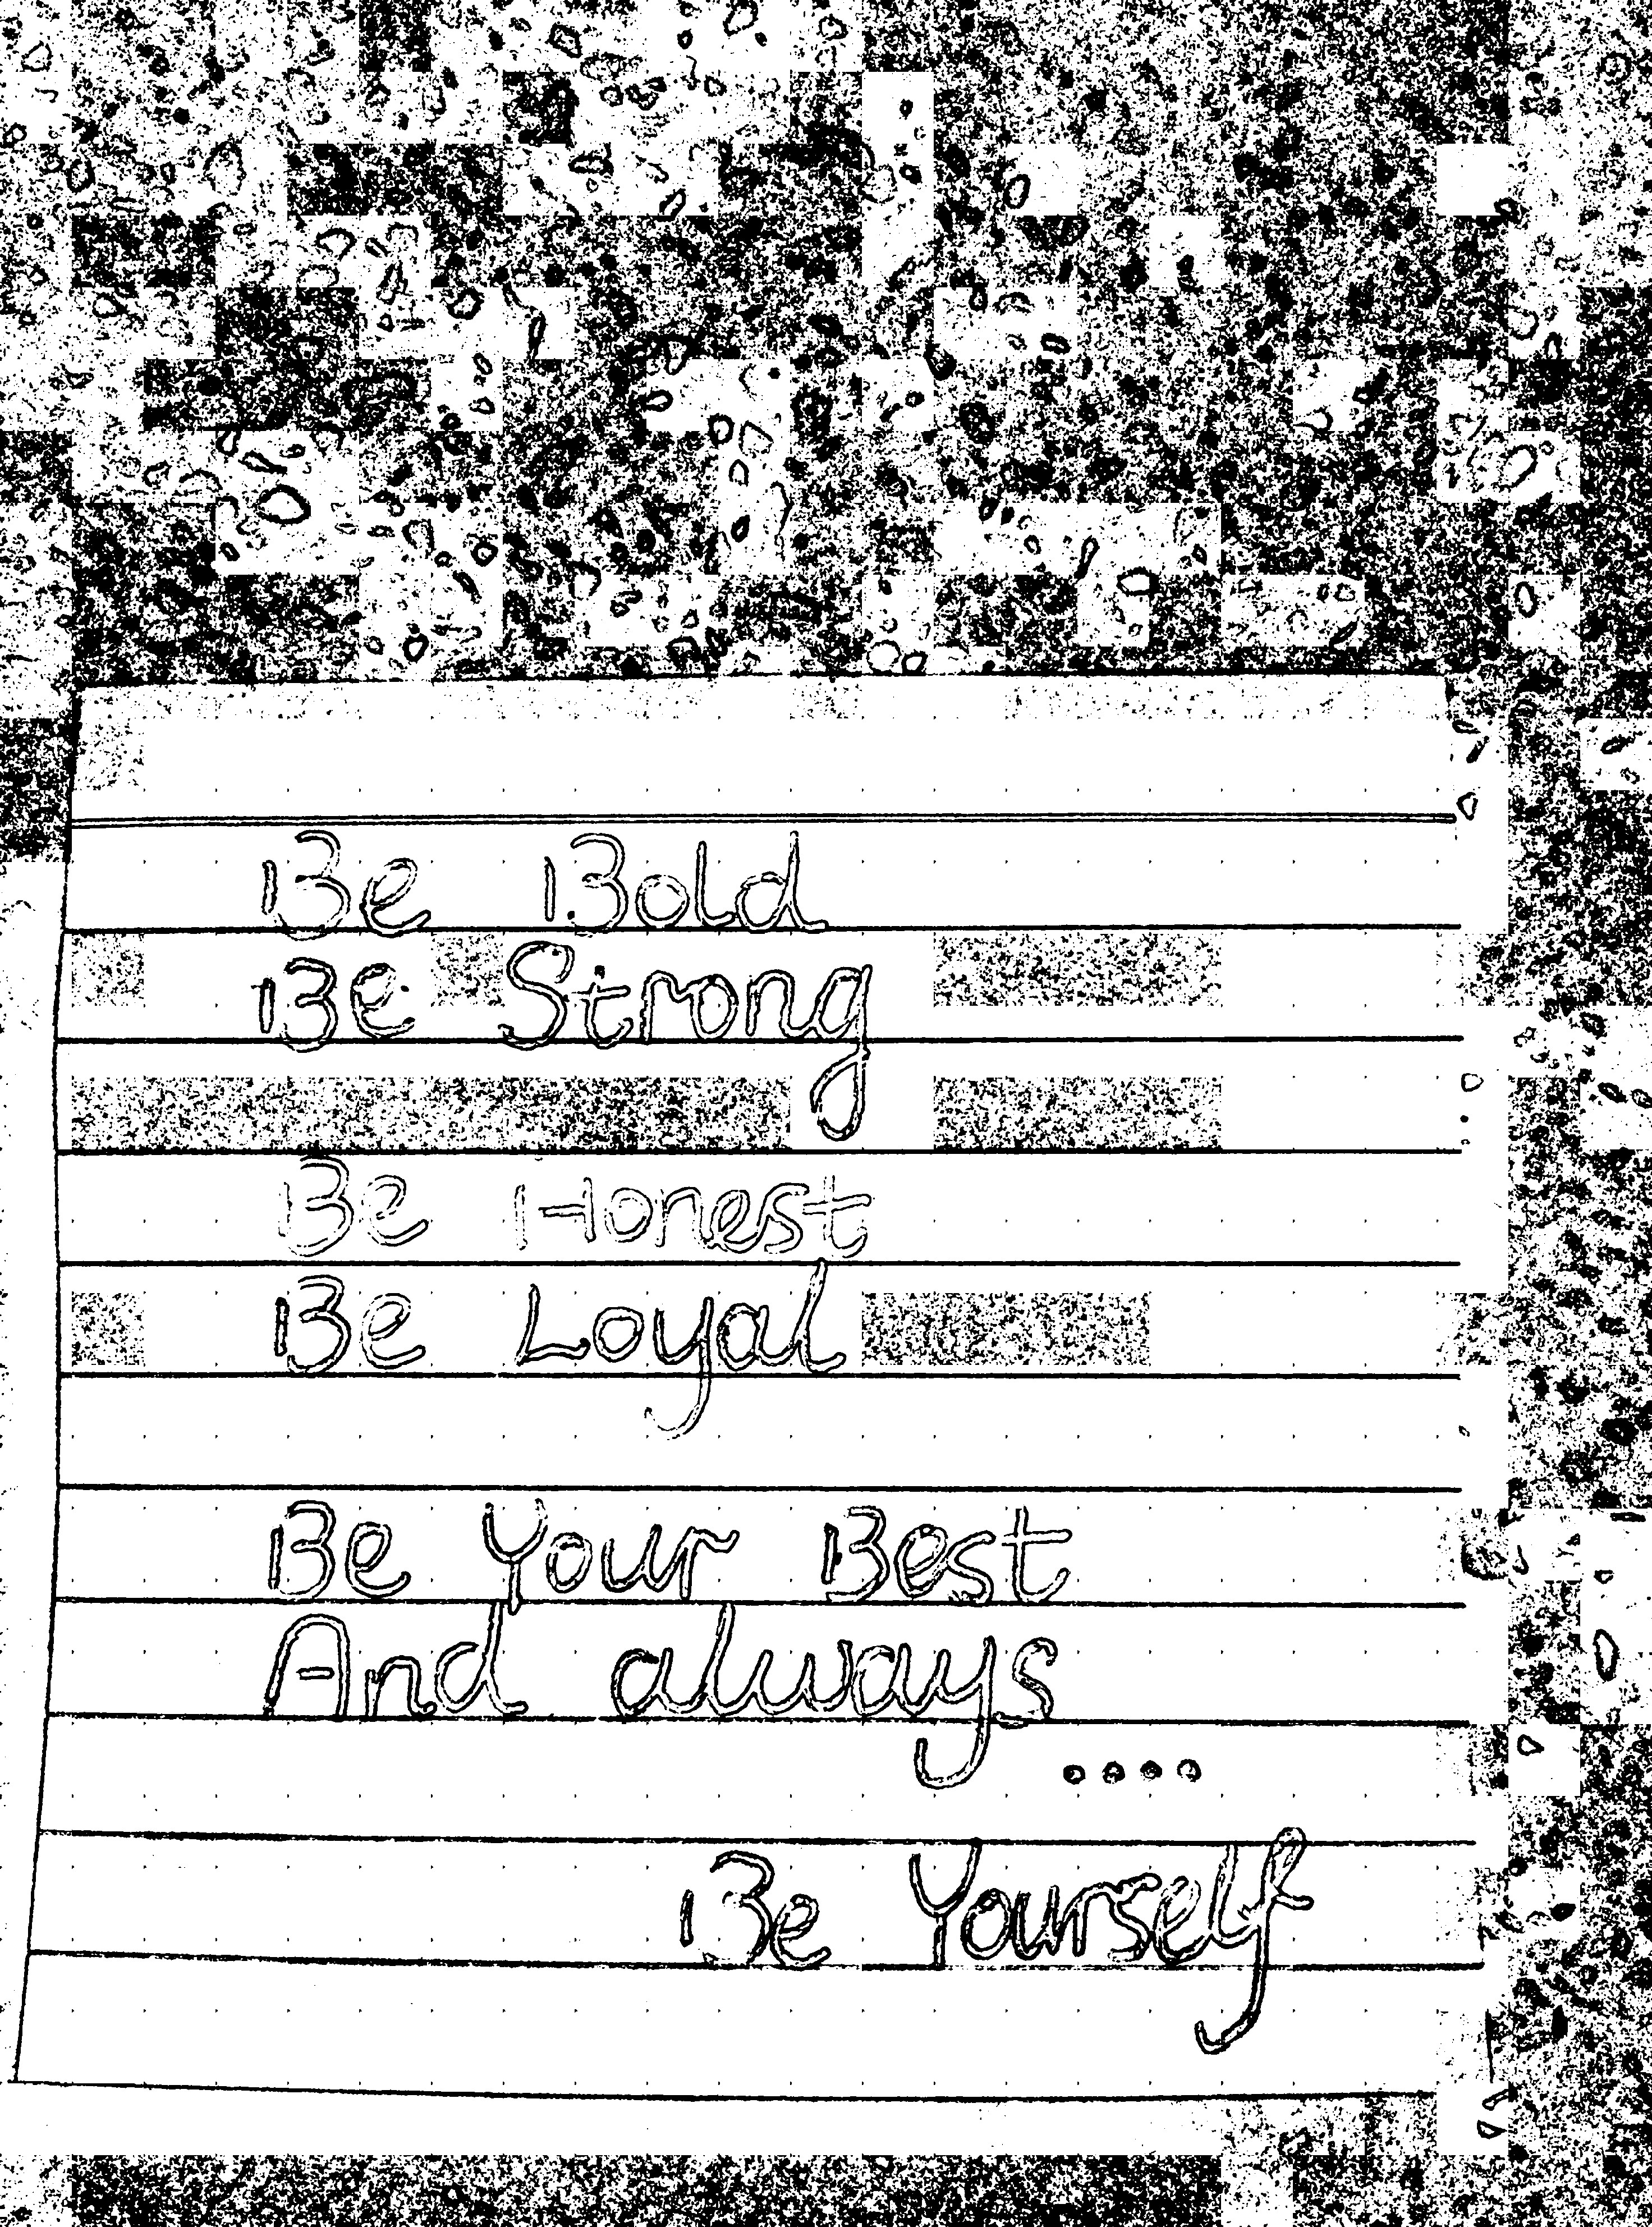 Be Bold
Be Strong
Be Honest
Be Loyal
Be Your Best
And always
....
Be Yourself